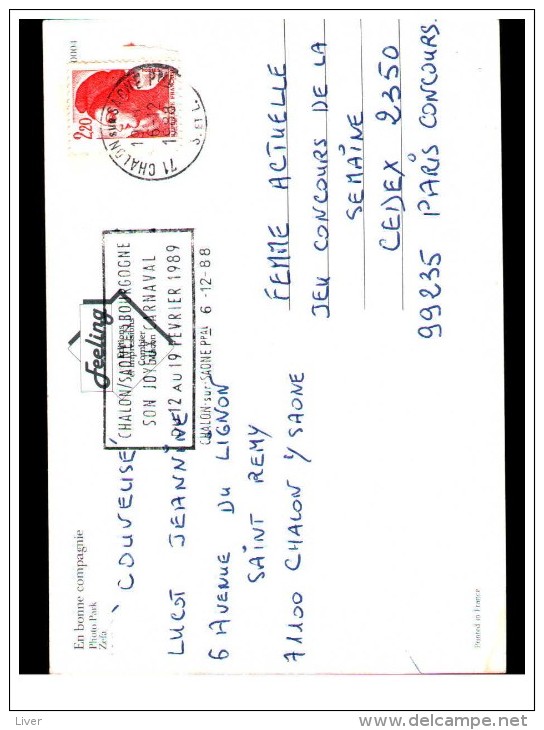 En bonne compagnie
Photo Park
Zefa
"COUVEUSE"
LUCOT JEANNINE
6 AVENUE DU LIGNON
SAINT REMY
71100 CHALON S/SAONE
Feeling
Editions
Combier
Macon
CHALON/SAONE EN BOURGOGNE
SON JOYEUX CARNAVAL
DU 12 AU 19 FEVRIER 1989
CHALON-sur-SAONE PPAL 6-12-88
71 CHALON sur SAONE PPAL
6-12
1988
S. ET L.
2,20
0004
FEMME ACTUELLE
JEU CONCOURS DE LA
SEMAINE
CEDEX 2350
99235 PARIS CONCOURS.
Printed in France
Liver
www.delcampe.net